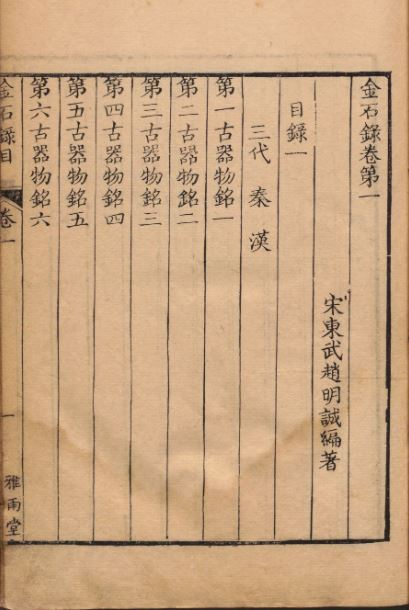 金石錄卷第一
宋東武趙明誠編著
目錄一
三代 秦 漢
第一古器物銘一
第二古器物銘二
第三古器物銘三
第四古器物銘四
第五古器物銘五
第六古器物銘六
金石錄目 卷一 一 雅雨堂